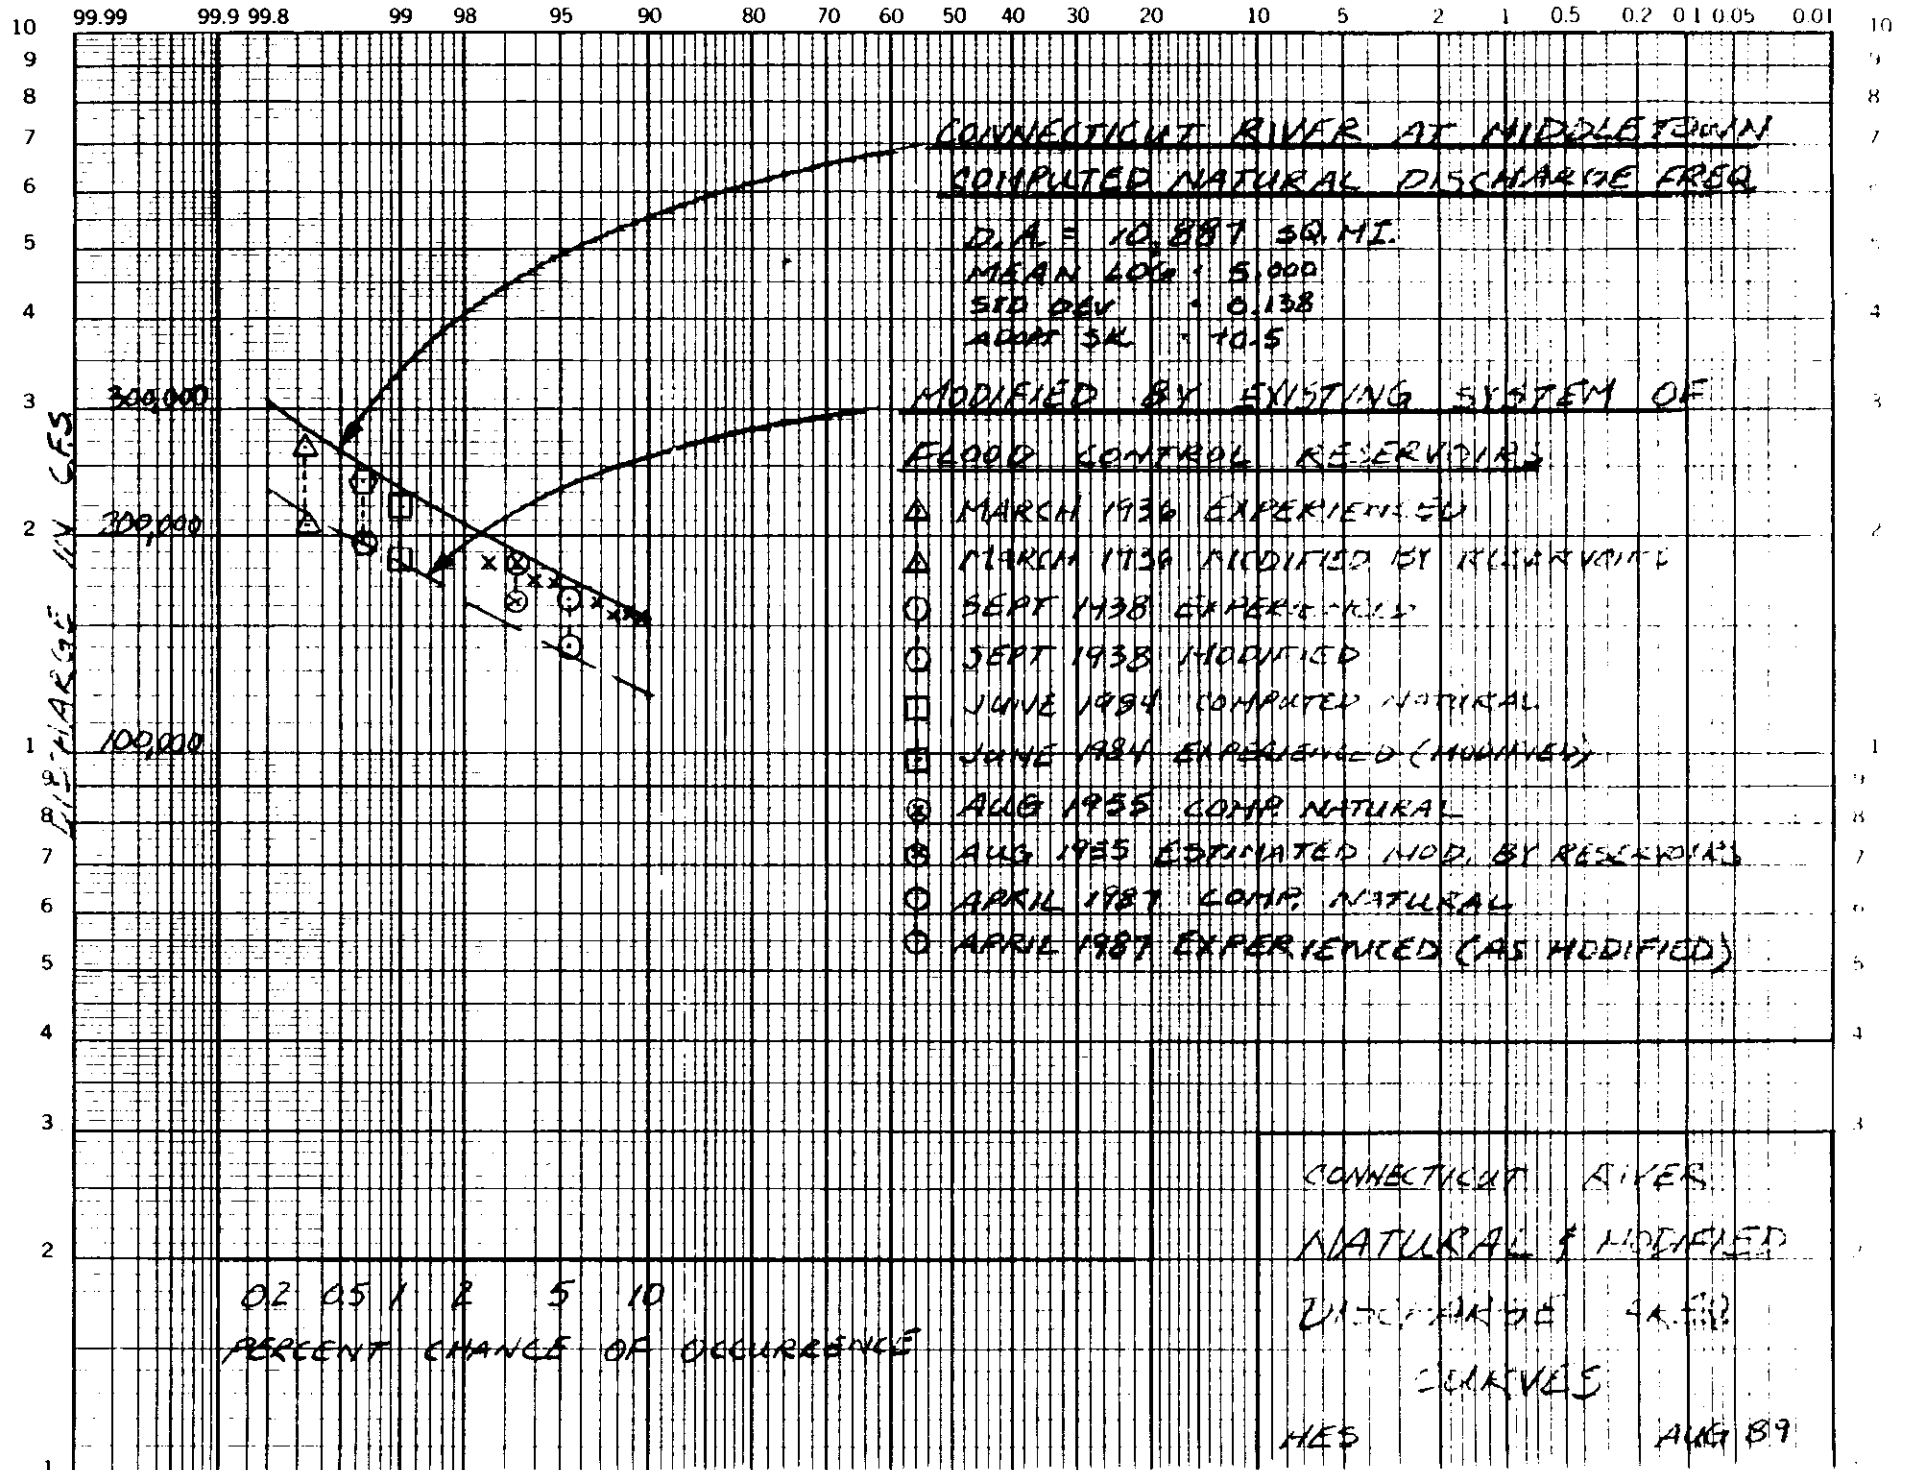 99.99 99.9 99.8 99 98 95 90 80 70 60 50 40 30 20 10 5 2 1 0.5 0.2 0.1 0.05 0.01
10 10
9
8 8
7 7
6
5
4 4
3 3
2 2
1 1
9 9
8 8
7 7
6
5 5
4 4
3 3
2
1
300,000
200,000
100,000
DISCHARGE IN C.F.S
CONNECTICUT RIVER AT MIDDLETOWN
COMPUTED NATURAL DISCHARGE FREQ
D.A. = 10,887 SQ. MI.
MEAN LOG = 5.000
STD DEV = 0.138
ADOPT SK = +0.5
MODIFIED BY EXISTING SYSTEM OF
FLOOD CONTROL RESERVOIRS
MARCH 1936 EXPERIENCED
MARCH 1936 MODIFIED BY RESERVOIRS
SEPT 1938 EXPERIENCED
SEPT 1938 MODIFIED
JUNE 1984 COMPUTED NATURAL
JUNE 1984 EXPERIENCED (MODIFIED)
AUG 1955 COMP. NATURAL
AUG 1955 ESTIMATED MOD. BY RESERVOIRS
APRIL 1987 COMP. NATURAL
APRIL 1987 EXPERIENCED (AS MODIFIED)
02 05 1 2 5 10
PERCENT CHANCE OF OCCURRENCE
CONNECTICUT RIVER
NATURAL & MODIFIED
DISCHARGE FREQ
CURVES
HES AUG 89